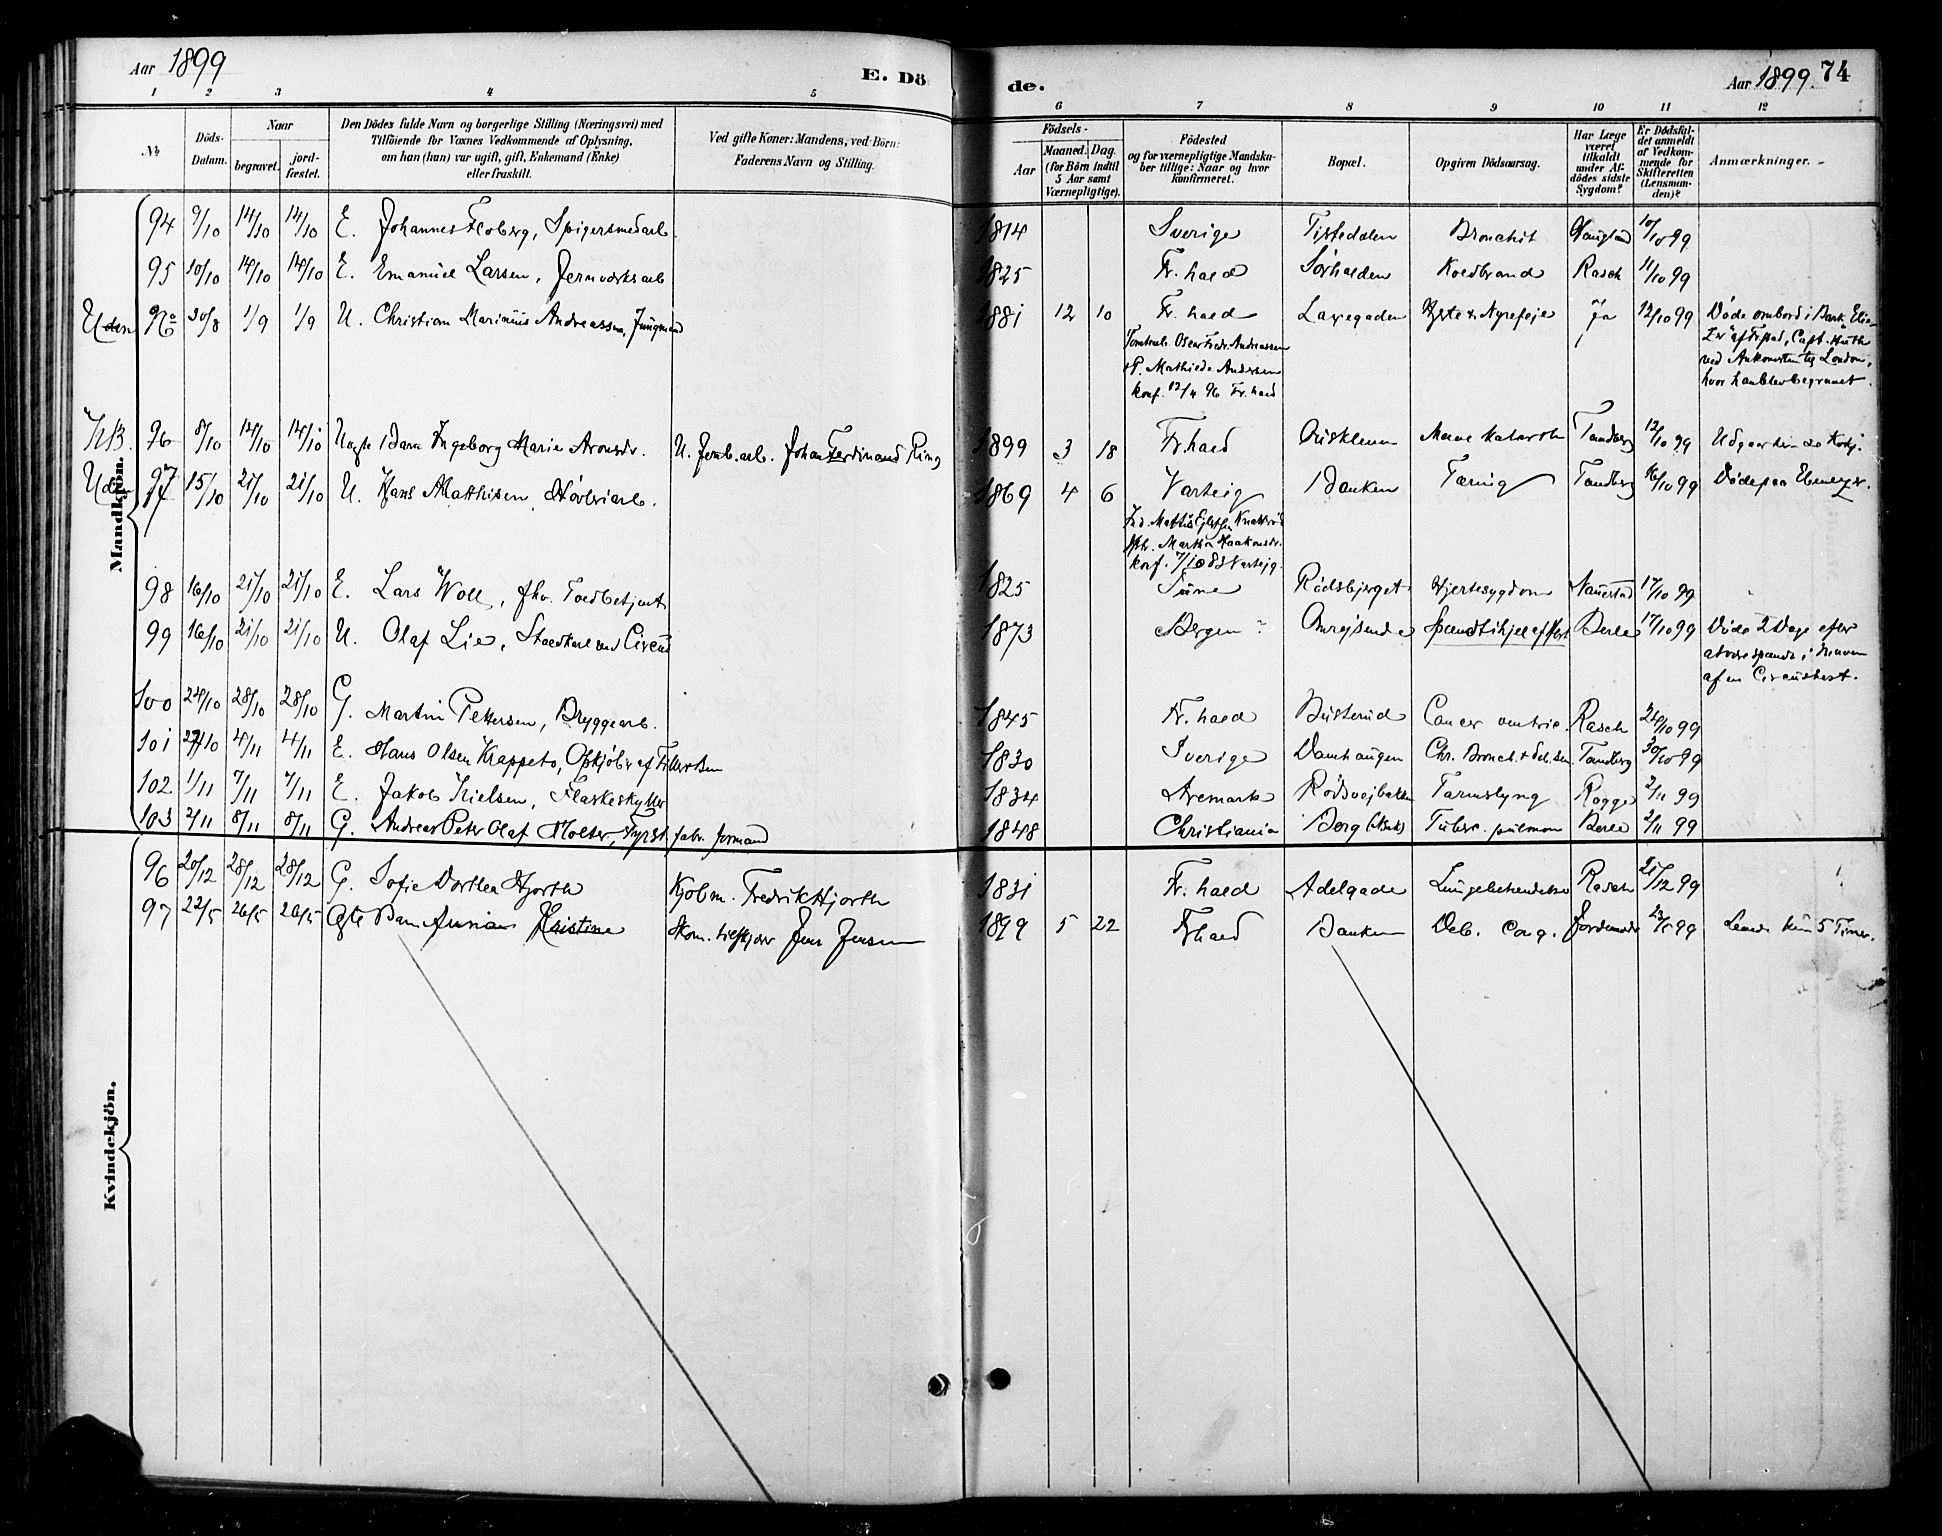 Aar 1899
E. Dö
de.
Aar 1899. 74
1 2 3 4 5 6 7 8 9 10 11 12
№
Döds-Datum.
Naar
begravet.
jord-fæstet.
Den Dödes fulde Navn og borgerlige Stilling (Næringsvei) med
Tilföiende for Voxnes Vedkommende af Oplysning,
om han (hun) var ugift, gift, Enkemand (Enke)
eller fraskilt.
Ved gifte Koner: Mandens, ved Börn:
Faderens Navn og Stilling.
Födsels-
Aar
Maaned. Dag.
(for Börn indtil
5 Aar samt
Værnepligtige).
Födested
og for værnepligtige Mandska-
ber tillige: Naar og hvor
konfirmeret.
Bopæl.
Opgiven Dödsaarsag.
Har Læge
været
tilkaldt
under Af-
dödes sidste
Sygdom?
Er Dödsfal-
det anmeldt
af Vedkom-
mende for
Skifteretten
(Lensman-
den)?
Anmærkninger.
Mandkjön.
94 9/10 14/10 14/10 E. Johannes Floberg, Spigersmedarb. 1814 Sverige Tistedalen Bronchit 10/10 99
95 10/10 14/10 14/10 E. Emanuel Larsen, Jernværksarb 1825 Fr.hald Sørhalden Koldbrand Rasch 11/10 99
Uden No 30/8 1/9 1/9 U. Christian Marinius Andreassen, Jungmand 1881 12 10 Fr. hald Lavegaden Hjerte & Nyrefeje ja 12/10 99 Døde ombord i Bark
Fr.stad, Capt.
Mathilde Andersen ved Ankomsten til London,
konf. 12/4 96 Fr.hald hvor han blev begravet.
NB. 96 8/10 14/10 14/10 Uægte Barn Ingeborg Marie Aronsdr. U. Jernb.arb. Johan Ferdinand Ring 1899 3 18 Fr.hald Tandberg 12/10 99 Udgaar
Uden 97 15/10 21/10 21/10 U. Hans Matthisen, Høvleriarb. 1869 4 6 Varteig Banken Tæring Tandberg 16/10 99 Døde paa Ebenezer.
Martha Haakonsdr.
konf. 7/10 83 Varteig
98 16/10 21/10 21/10 E. Lars Woll, fhv. Toldbetjent 1825 Tune Rødsbjerget Hjertesygdom 17/10 99
99 16/10 21/10 21/10 U. Olaf Lie, Staldkarl ved Circus 1873 Bergen? Omrejsende Spændt ihjel af Hest Berle 17/10 99 Døde 2 Dage efter
at være spændt i Maven
af en Circushest.
100 24/10 28/10 28/10 G. Martin Pettersen, Bryggearb. 1845 Fr. hald Busterud Cancer ventric. Rasch 24/10 99
101 4/11 4/11 E. Hans Olsen Krappeto, Opkjøber af Filler & Ben 1830 Sverige Damhaugen Chr. Bronch. & deb. sen. Tandberg 30/10 99
102 1/11 7/11 7/11 E. Jakob Nielsen, Flaskeskyller 1834 Aremark Rødsvejbakken Tarmslyng Rogge 2/11 99
103 2/11 8/11 8/11 G. Andreas Peter Olaf Holter, Fyrst. fabr. formand 1848 Christiania Berg Tuberc. pulmon Berle 2/11 99
Kvindekjön.
96 20/12 28/12 28/12 G. Sofie Dorthea Hjorth Kjøbm. Fredrik Hjorth 1831 Fr. hald Adelgade Lungebetændelse Rasch 21/12 99
97 22/5 26/5 26/5 Ægte Barn Kristine Jens Jensen 1899 5 22 Fr.hald Banken Deb. cong. Jordemoder 23/5 99 Levede kun 5 Timer.